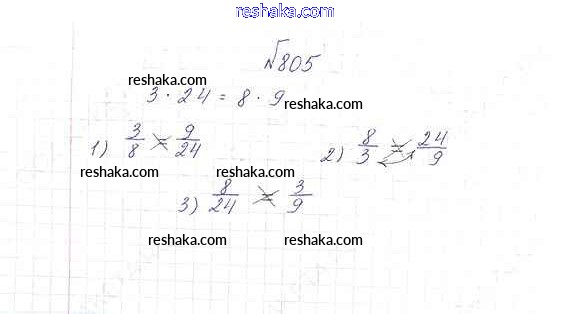 reshaka.com
№805
reshaka.com
3 · 24 = 8 · 9 reshaka.com
1) 3/8 = 9/24 2) 8/3 = 24/9
reshaka.com reshaka.com
3) 8/24 = 3/9
reshaka.com reshaka.com